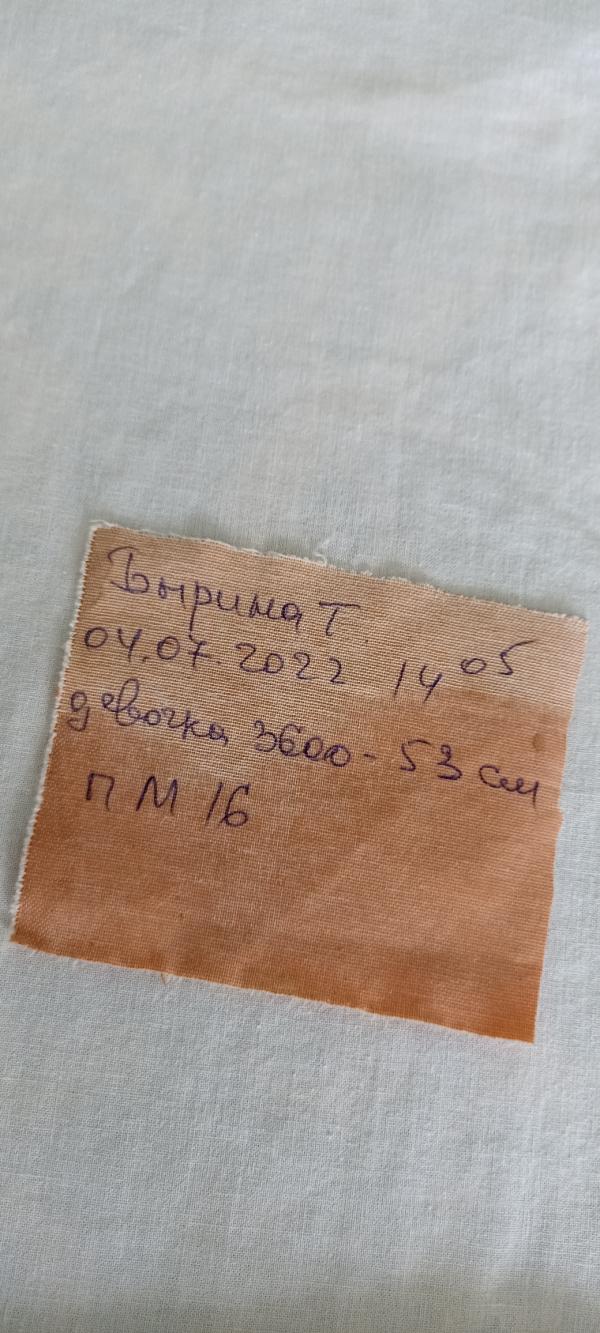 Бырима Т.
04.07.2022 14 05
девочка 3600 - 53 см
П М 16